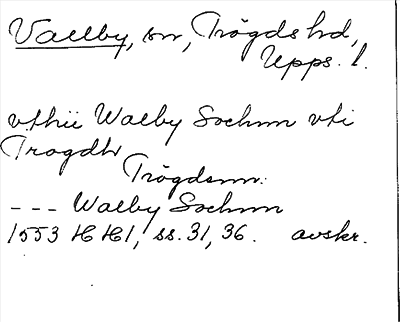 Vallby, sn, Trögds hd,
Upps. l.
vthii Walby Sochnn vti
Trogdh
Trögdsnn:
--- Walby Sochnn
1553 HH1, ss. 31, 36. avskr.